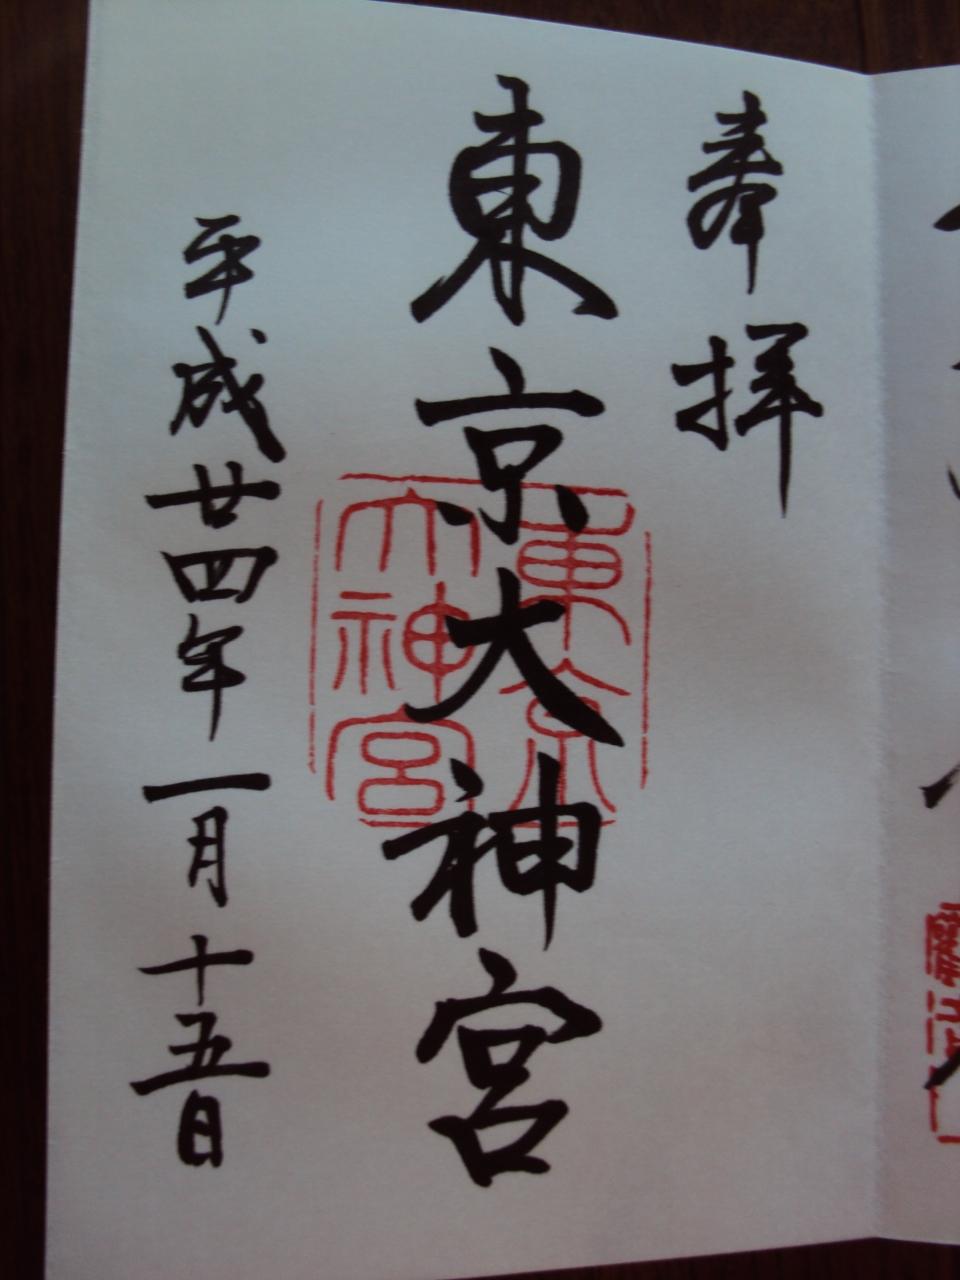 奉拝
東京大神宮
東京
大神宮
平成廿四年一月十五日